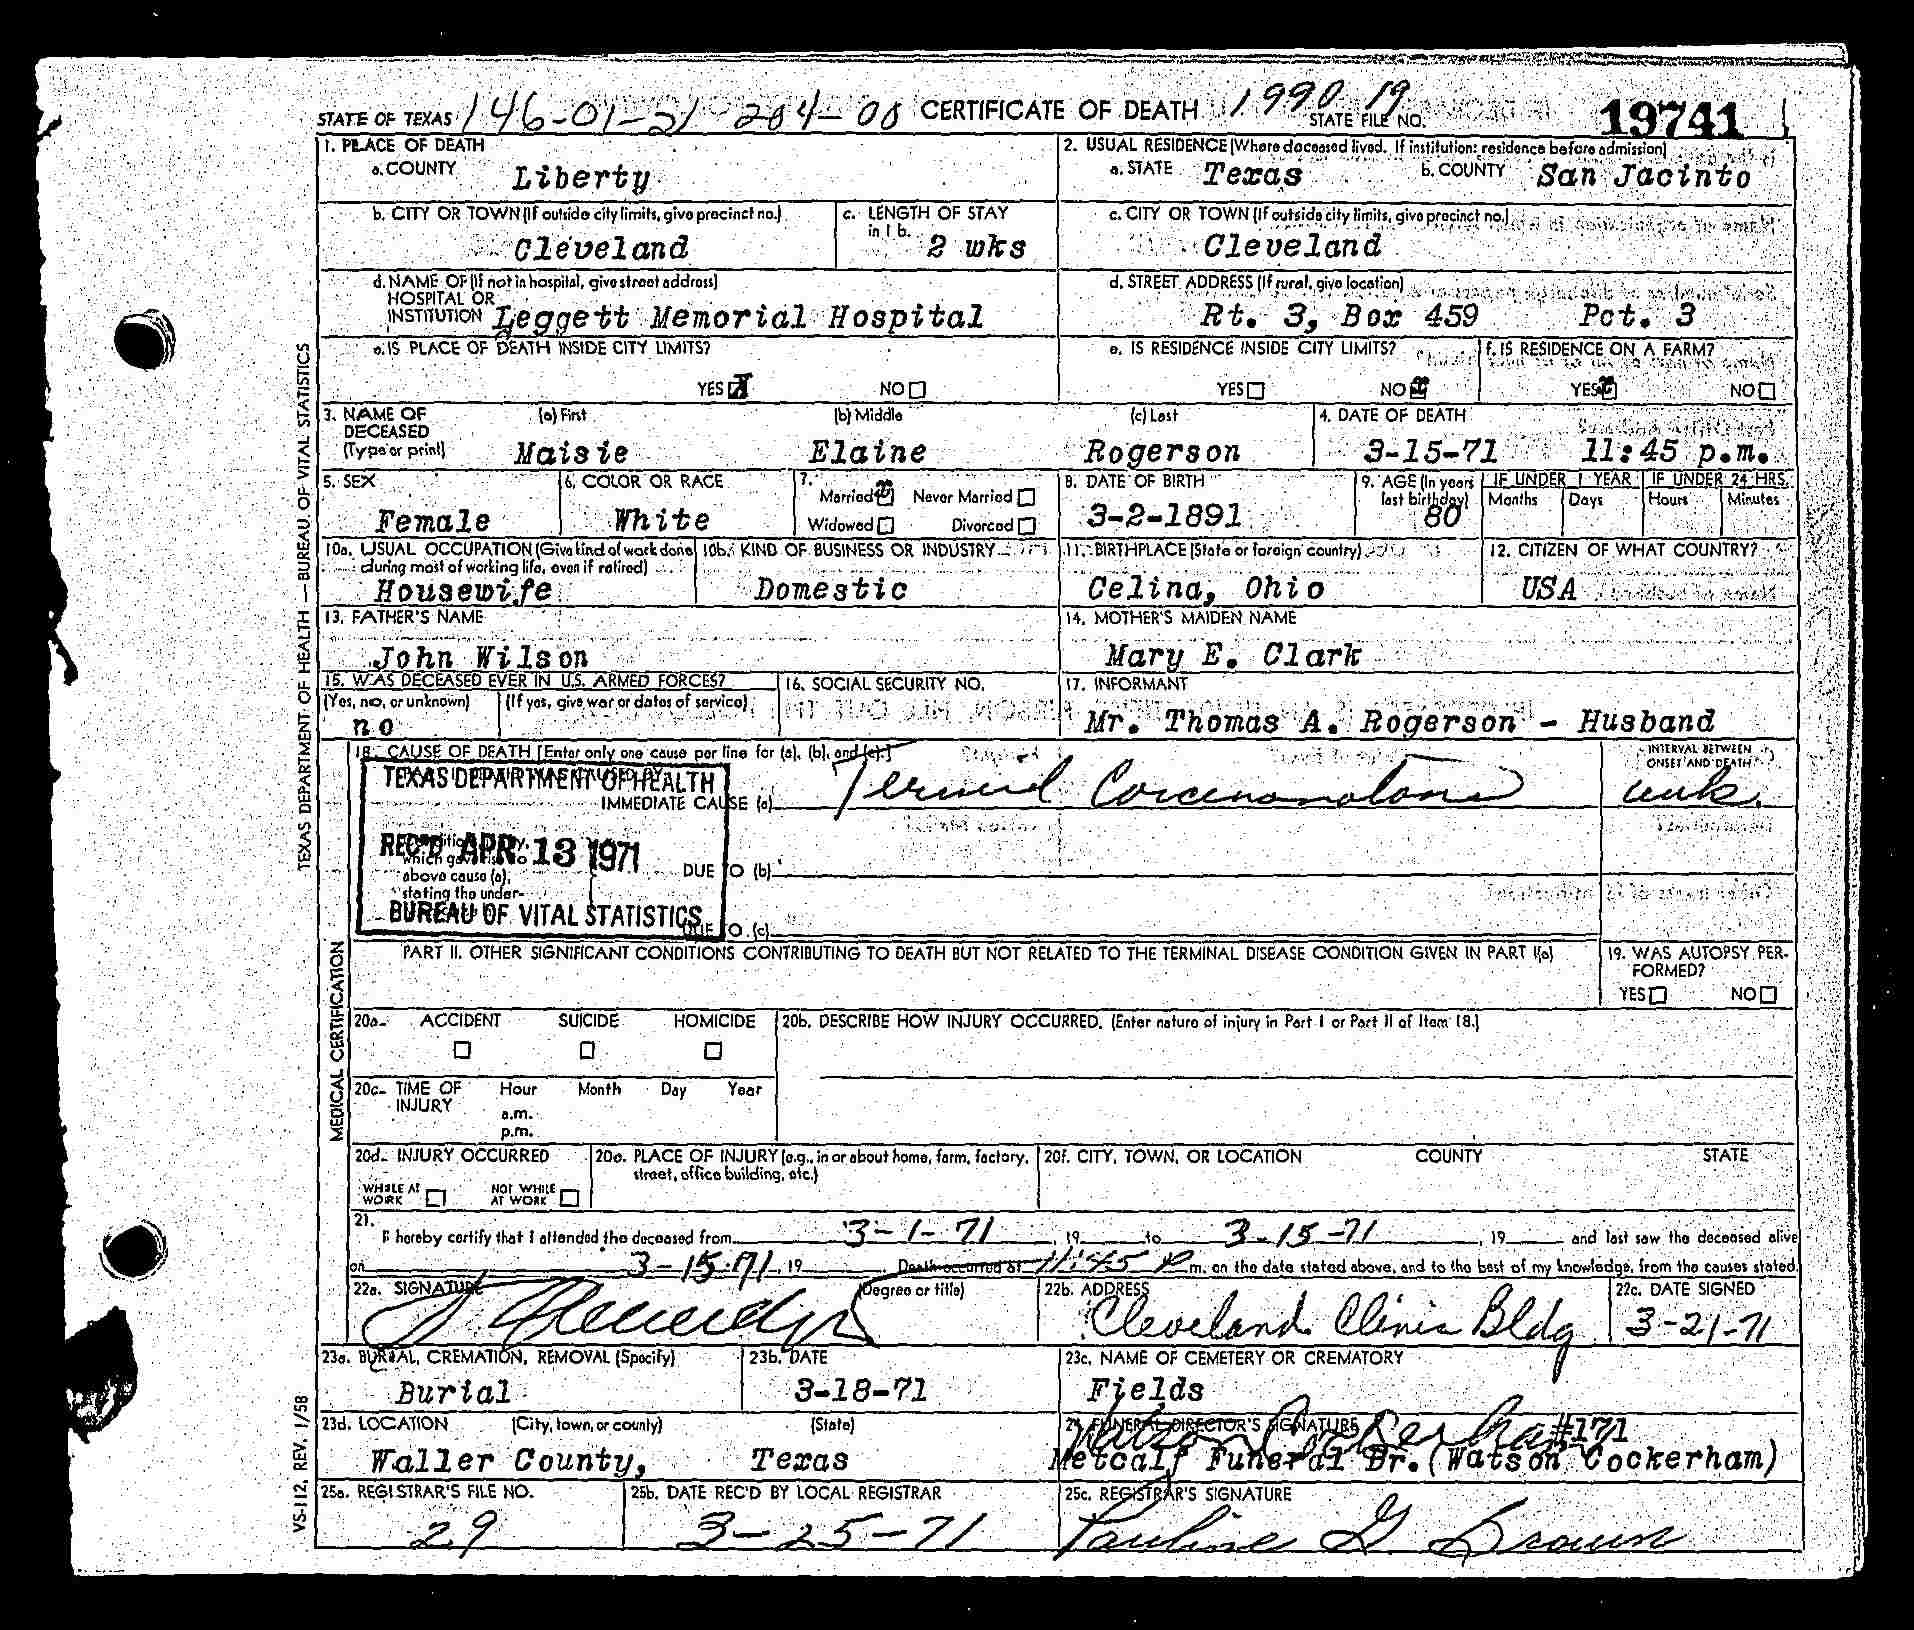 STATE OF TEXAS 146-01-21 204-00 CERTIFICATE OF DEATH 1990 19 STATE FILE NO. 19741
1. PLACE OF DEATH
a. COUNTY Liberty
2. USUAL RESIDENCE (Where deceased lived. If institution: residence before admission)
a. STATE Texas b. COUNTY San Jacinto
b. CITY OR TOWN (If outside city limits, give precinct no.) Cleveland
c. LENGTH OF STAY in 1 b. 2 wks
c. CITY OR TOWN (If outside city limits, give precinct no.) Cleveland
d. NAME OF (If not in hospital, give street address) HOSPITAL OR INSTITUTION Leggett Memorial Hospital
d. STREET ADDRESS (If rural, give location) Rt. 3, Box 459 Pct. 3
e. IS PLACE OF DEATH INSIDE CITY LIMITS?
YES X NO
e. IS RESIDENCE INSIDE CITY LIMITS?
YES NO X
f. IS RESIDENCE ON A FARM?
YES X NO
3. NAME OF DECEASED (Type or print)
(a) First Maisie (b) Middle Elaine (c) Last Rogerson
4. DATE OF DEATH 3-15-71 11:45 p.m.
5. SEX Female
6. COLOR OR RACE White
7. Married X Never Married
Widowed Divorced
8. DATE OF BIRTH 3-2-1891
9. AGE (In years last birthday) 80
IF UNDER 1 YEAR Months Days
IF UNDER 24 HRS. Hours Minutes
10a. USUAL OCCUPATION (Give kind of work done during most of working life, even if retired) Housewife
10b. KIND OF BUSINESS OR INDUSTRY Domestic
11. BIRTHPLACE (State or foreign country) Celina, Ohio
12. CITIZEN OF WHAT COUNTRY? USA
13. FATHER'S NAME John Wilson
14. MOTHER'S MAIDEN NAME Mary E. Clark
15. WAS DECEASED EVER IN U.S. ARMED FORCES?
(Yes, no, or unknown) no (If yes, give war or dates of service)
16. SOCIAL SECURITY NO.
17. INFORMANT Mr. Thomas A. Rogerson - Husband
18. CAUSE OF DEATH [Enter only one cause per line for (a), (b), and (c).]
INTERVAL BETWEEN ONSET AND DEATH
TEXAS DEPARTMENT OF HEALTH
REC'D APR 13 1971
BUREAU OF VITAL STATISTICS
IMMEDIATE CAUSE (a)
which gave rise to
above cause (a),
stating the under-
DUE TO (b)
DUE TO (c)
PART II. OTHER SIGNIFICANT CONDITIONS CONTRIBUTING TO DEATH BUT NOT RELATED TO THE TERMINAL DISEASE CONDITION GIVEN IN PART I(a)
19. WAS AUTOPSY PERFORMED?
YES NO
20a. ACCIDENT SUICIDE HOMICIDE
20b. DESCRIBE HOW INJURY OCCURRED. (Enter nature of injury in Part I or Part II of Item 18.)
20c. TIME OF INJURY Hour Month Day Year
a.m.
p.m.
20d. INJURY OCCURRED
WHILE AT WORK NOT WHILE AT WORK
20e. PLACE OF INJURY (e.g., in or about home, farm, factory, street, office building, etc.)
20f. CITY, TOWN, OR LOCATION COUNTY STATE
21. I hereby certify that I attended the deceased from 3-1-71, 19 to 3-15-71, 19 and last saw the deceased alive
on 3-15-71, 19 . Death occurred at 11:45 P m. on the date stated above, and to the best of my knowledge, from the causes stated.
22a. SIGNATURE (Degree or title)
22b. ADDRESS Cleveland Clinic Bldg
22c. DATE SIGNED 3-21-71
23a. BURIAL, CREMATION, REMOVAL (Specify) Burial
23b. DATE 3-18-71
23c. NAME OF CEMETERY OR CREMATORY Fields
23d. LOCATION (City, town, or county) (State) Waller County, Texas
24. FUNERAL DIRECTOR'S SIGNATURE Watson Cockerham #171
Metcalf Funeral Dr. (Watson Cockerham)
25a. REGISTRAR'S FILE NO. 29
25b. DATE REC'D BY LOCAL REGISTRAR 3-25-71
25c. REGISTRAR'S SIGNATURE Pauline G Brown
TEXAS DEPARTMENT OF HEALTH — BUREAU OF VITAL STATISTICS
MEDICAL CERTIFICATION
VS-112, REV. 1/58